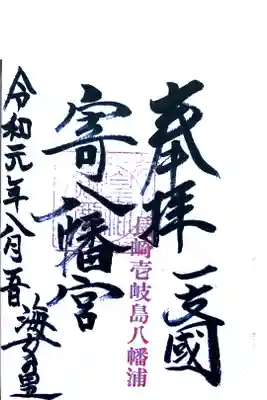 奉拝 一支國
長崎壱岐島八幡浦
寄八幡宮
令和元年八月吾 海女の里